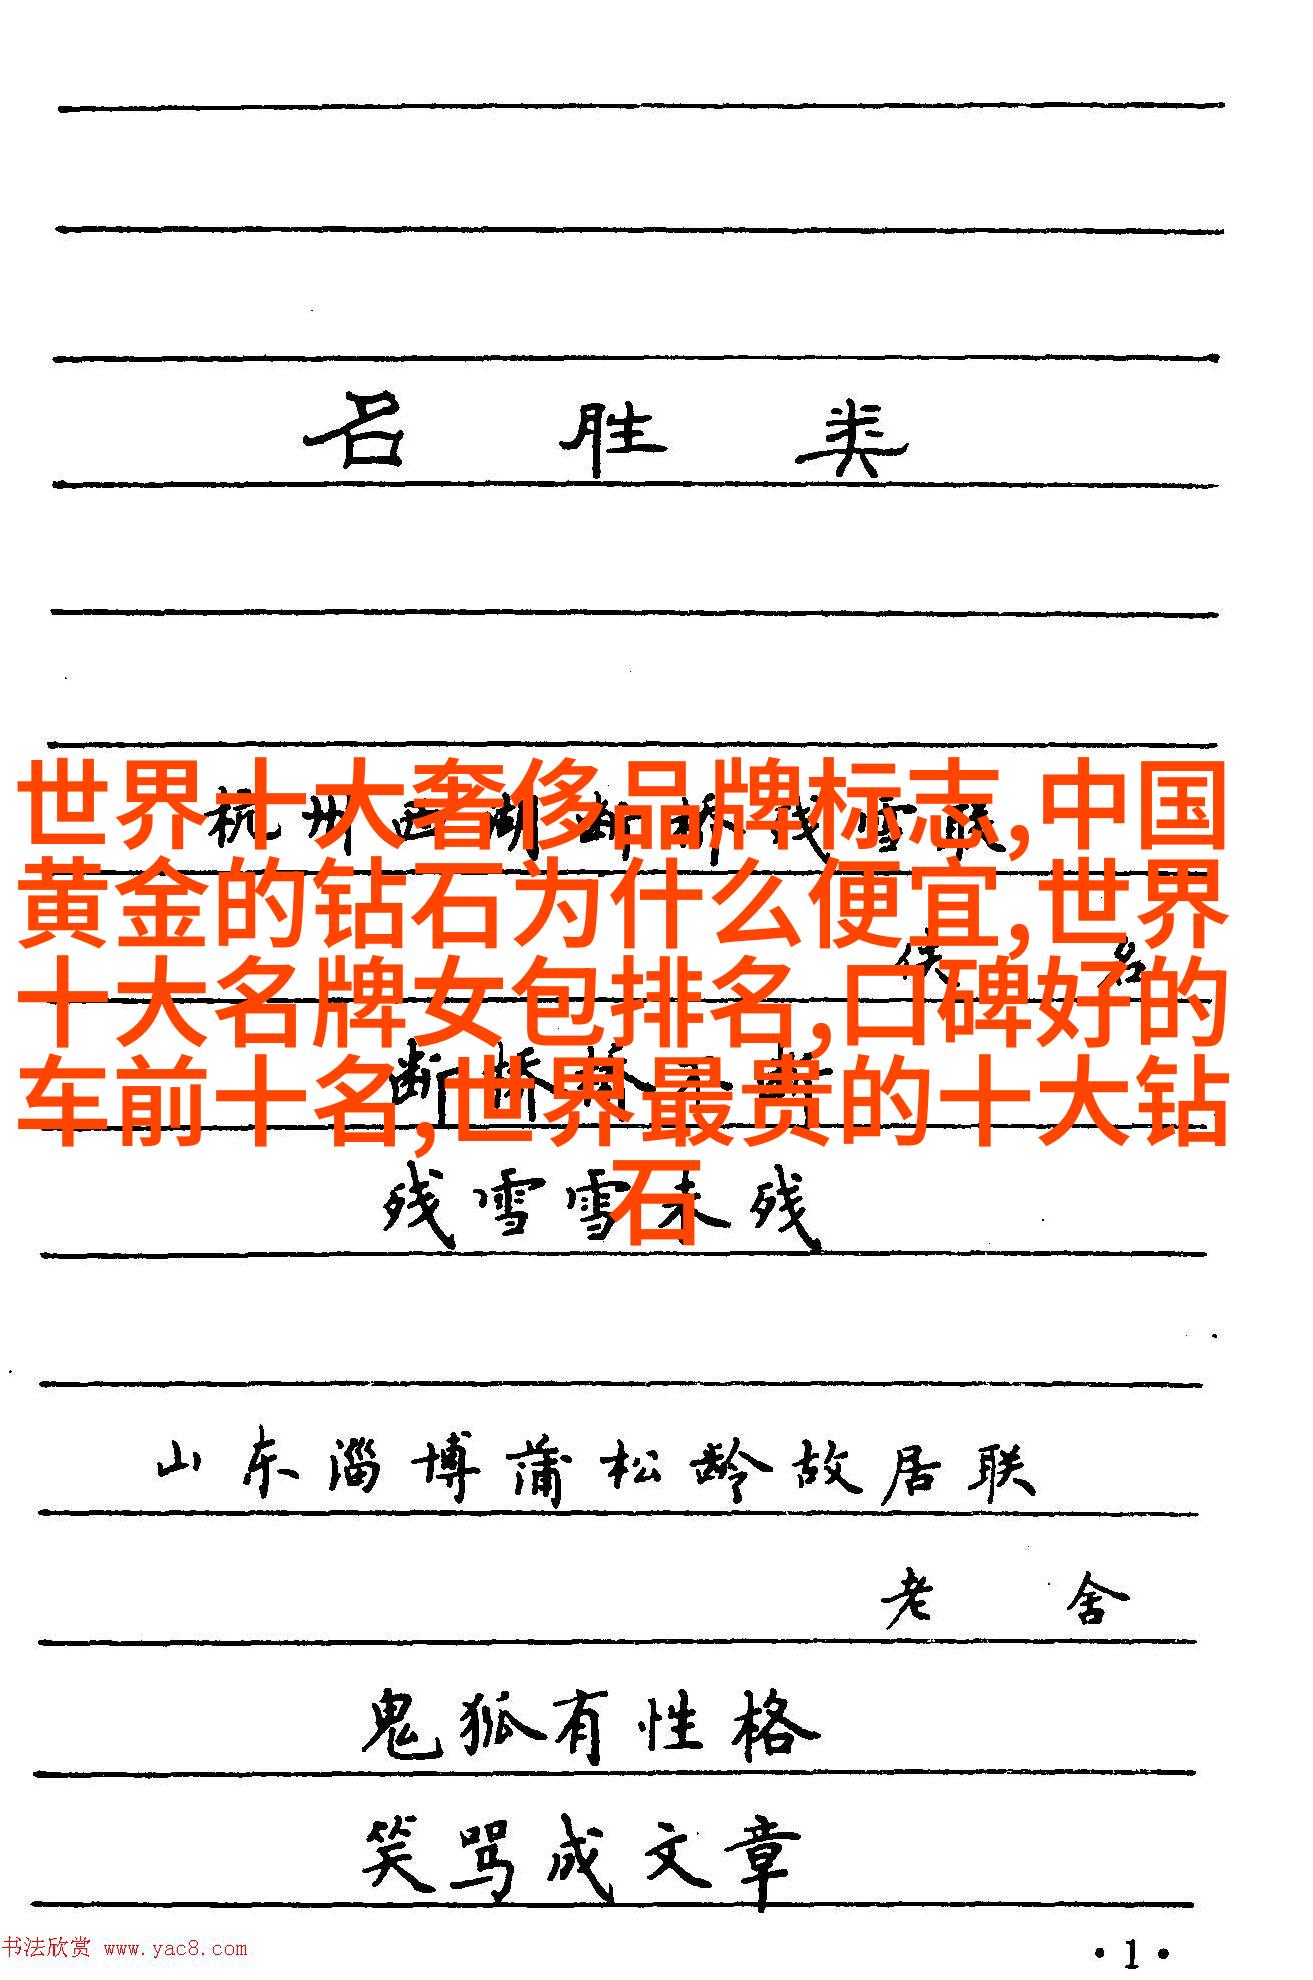 名胜类
杭州西湖断桥残雪联
世界十大奢侈品牌标志,中国
黄金的钻石为什么便宜,世界
佚名
十大名牌女包排名,口碑好的
断桥桥不断
车前十名,世界最贵的十大钻
石
残雪雪未残
山东淄博蒲松龄故居联
老舍
鬼狐有性格
笑骂成文章
书法欣赏 www.yac8.com
·1·